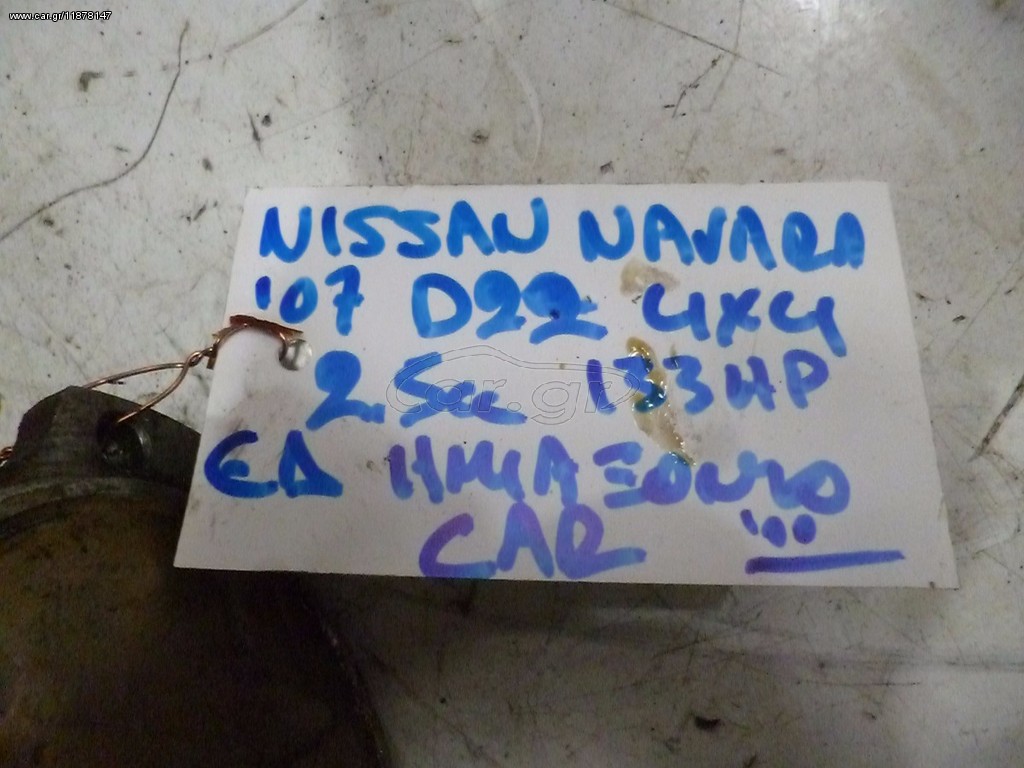 www.car.gr/11878147
NISSAN NAVARA
'07 D22 4X4
2.5cc 133HP
car.gr
ΕΔ ΗΜΙΑΞΟΝΙΟ
CAR